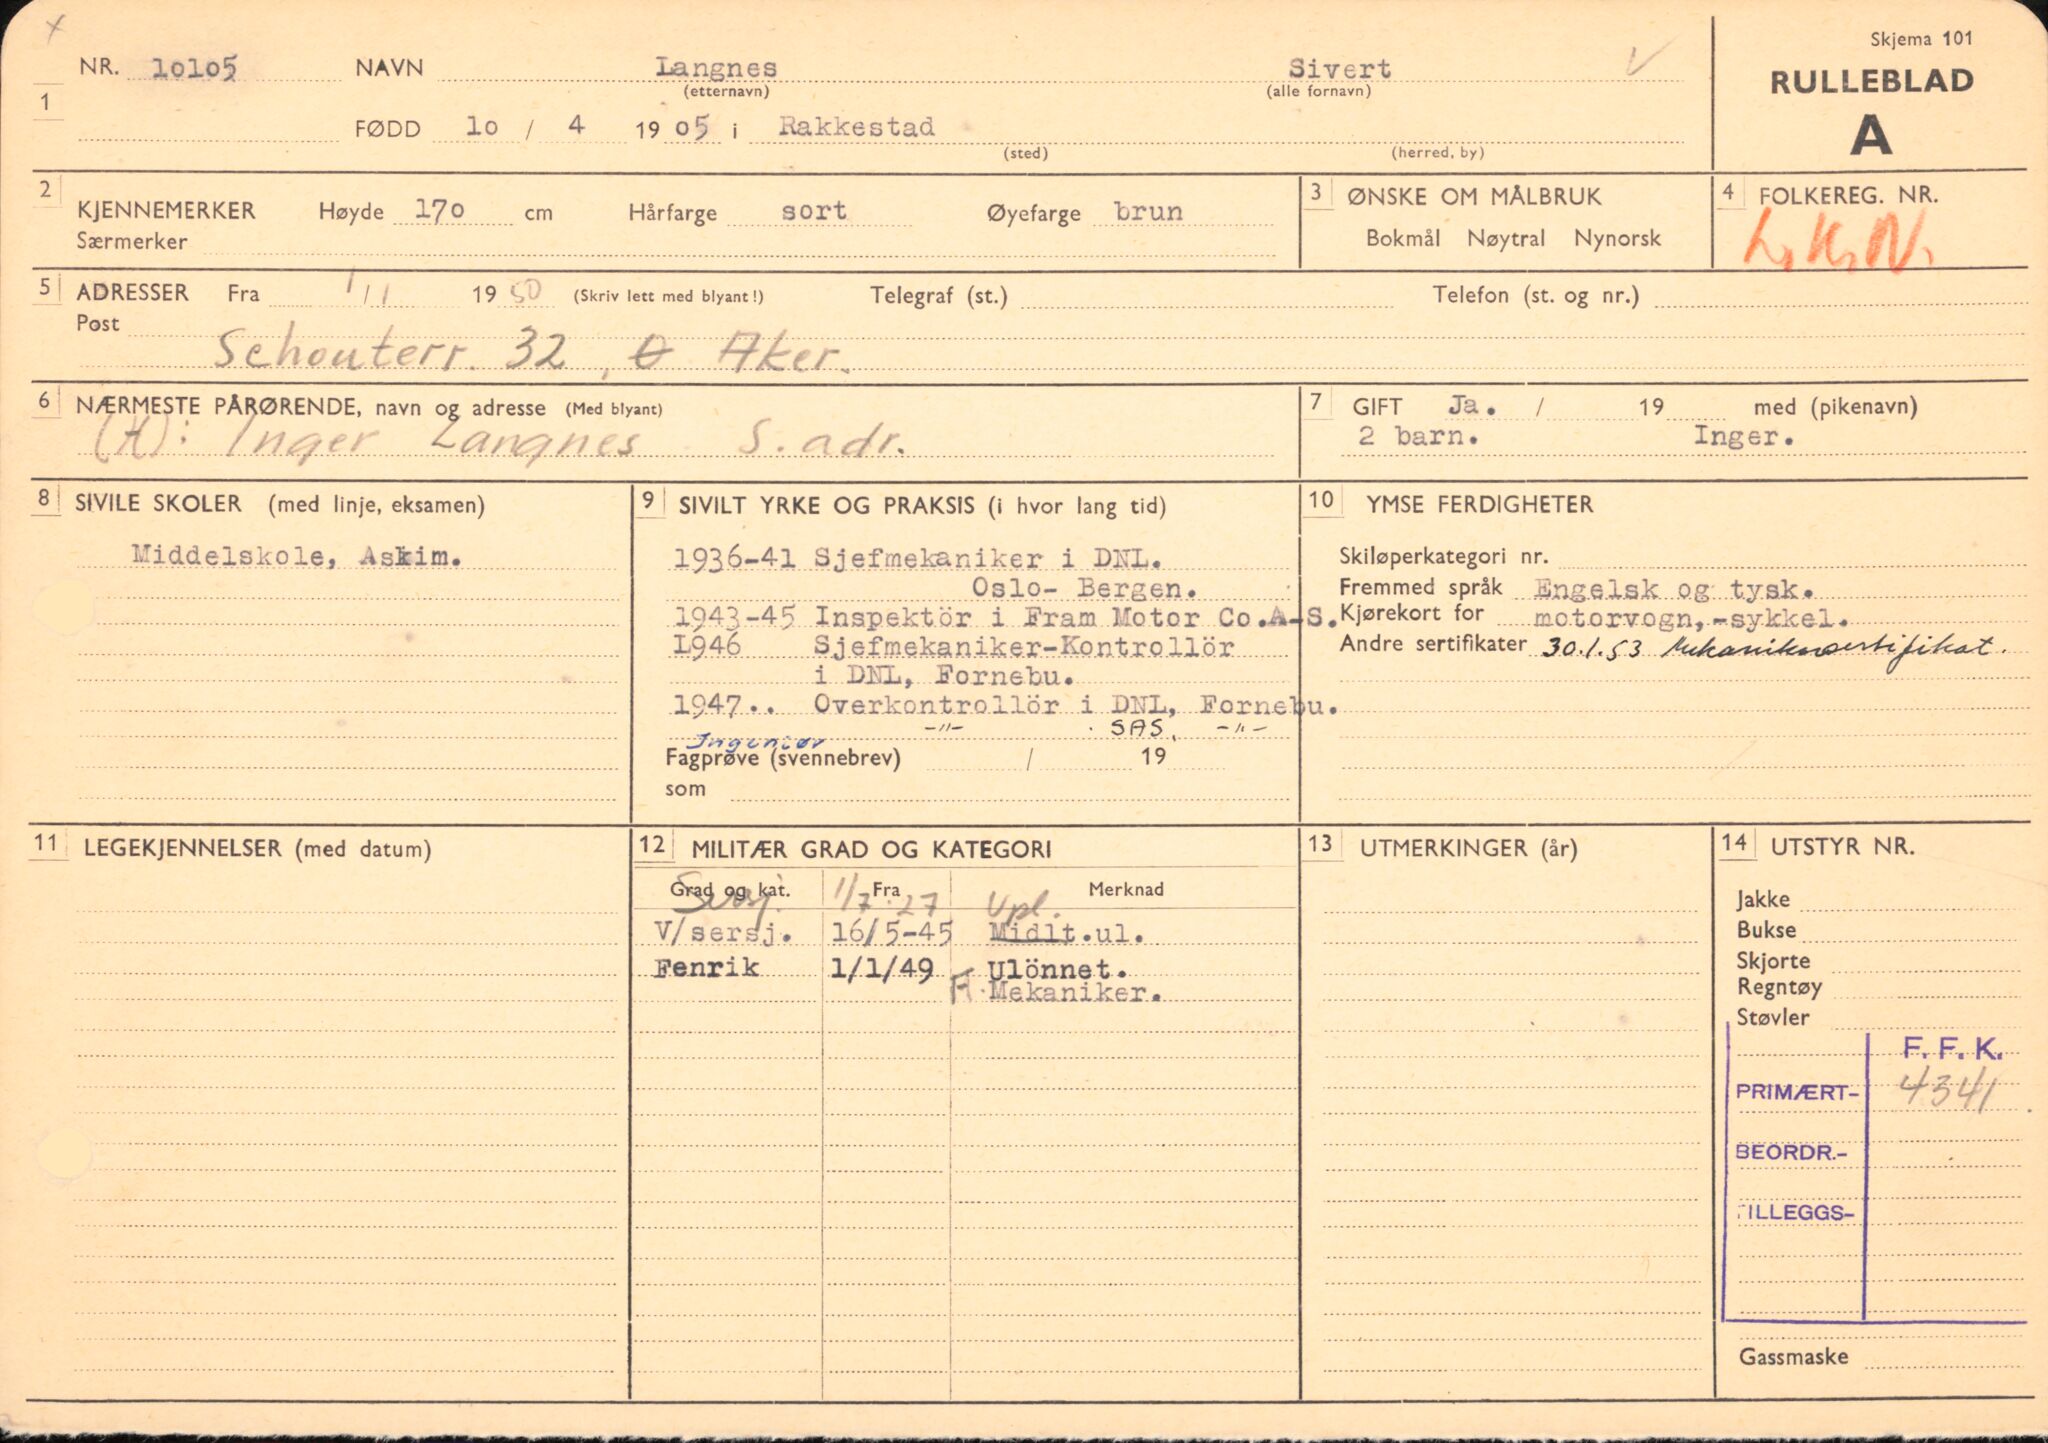 Skjema 101
RULLEBLAD
A
1 NR. 10105 NAVN Langnes Sivert
(etternavn) (alle fornavn)
FØDD 10 / 4 1905 i Rakkestad
(sted) (herred, by)
2 KJENNEMERKER Høyde 170 cm Hårfarge sort Øyefarge brun
Særmerker
3 ØNSKE OM MÅLBRUK
Bokmål Nøytral Nynorsk
4 FOLKEREG. NR.
5 ADRESSER Fra 1/1 1950 (Skriv lett med blyant!) Telegraf (st.) Telefon (st. og nr.)
Post
Schouterr. 32, Ø Aker.
6 NÆRMESTE PÅRØRENDE, navn og adresse (Med blyant)
(H): Inger Langnes S. adr.
7 GIFT Ja. / 19 med (pikenavn)
2 barn. Inger.
8 SIVILE SKOLER (med linje, eksamen)
Middelskole, Askim.
9 SIVILT YRKE OG PRAKSIS (i hvor lang tid)
1936-41 Sjefmekaniker i DNL.
Oslo- Bergen.
1943-45 Inspektör i Fram Motor Co.A-S.
L946 Sjefmekaniker-Kontrollör
i DNL, Fornebu.
1947.. Overkontrollör i DNL, Fornebu.
-"- SAS, -"-
Ingeniør
Fagprøve (svennebrev) / 19
som
10 YMSE FERDIGHETER
Skiløperkategori nr.
Fremmed språk Engelsk og tysk.
Kjørekort for motorvogn,-sykkel.
Andre sertifikater 30.1.53 Mekanikersertifikat.
11 LEGEKJENNELSER (med datum)
12 MILITÆR GRAD OG KATEGORI
Grad og kat. Fra Merknad
Sersj. 1/7.27 Vpl.
V/sersj. 16/5-45 Midlt.ul.
Fenrik 1/1/49 Ulönnet.
F. Mekaniker.
13 UTMERKINGER (år)
14 UTSTYR NR.
Jakke
Bukse
Skjorte
Regntøy
Støvler
F. F. K.
PRIMÆRT- 4341
BEORDR.-
TILLEGGS-
Gassmaske